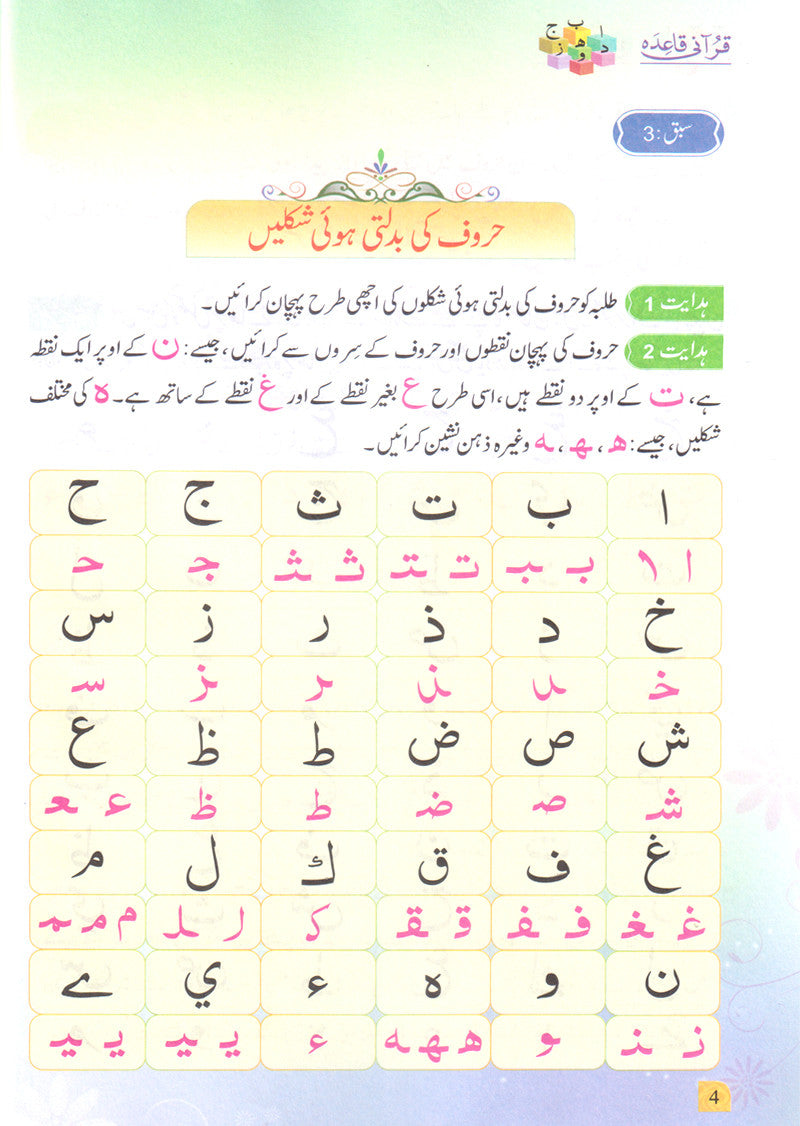 قرآنی قاعدہ
ا ب ج د ه و ز
سبق: 3
حروف کی بدلتی ہوئی شکلیں
ہدایت 1 طلبہ کو حروف کی بدلتی ہوئی شکلوں کی اچھی طرح پہچان کرائیں۔
ہدایت 2 حروف کی پہچان نقطوں اور حروف کے سِروں سے کرائیں، جیسے: ن کے اوپر ایک نقطہ
ہے، ت کے اوپر دو نقطے ہیں، اسی طرح ع بغیر نقطے کے اور غ نقطے کے ساتھ ہے۔ ہ کی مختلف
شکلیں، جیسے: ھ، ـهـ، ـه وغیرہ ذہن نشین کرائیں۔
ا ب ت ث ج ح
ا ـا بـ ـبـ تـ ـتـ ثـ ـثـ جـ حـ
خ د ذ ر ز س
خـ ـد ـذ ـر ـز سـ
ش ص ض ط ظ ع
شـ صـ ضـ ط ظ عـ ـعـ
غ ف ق ك ل م
غـ ـغـ فـ ـفـ قـ ـقـ كـ لـ ـلـ م مـ ـمـ
ن و ه ء ي ے
نـ ـنـ ـو هـ ـهـ ـه ء يـ ـيـ يـ ـيـ
4